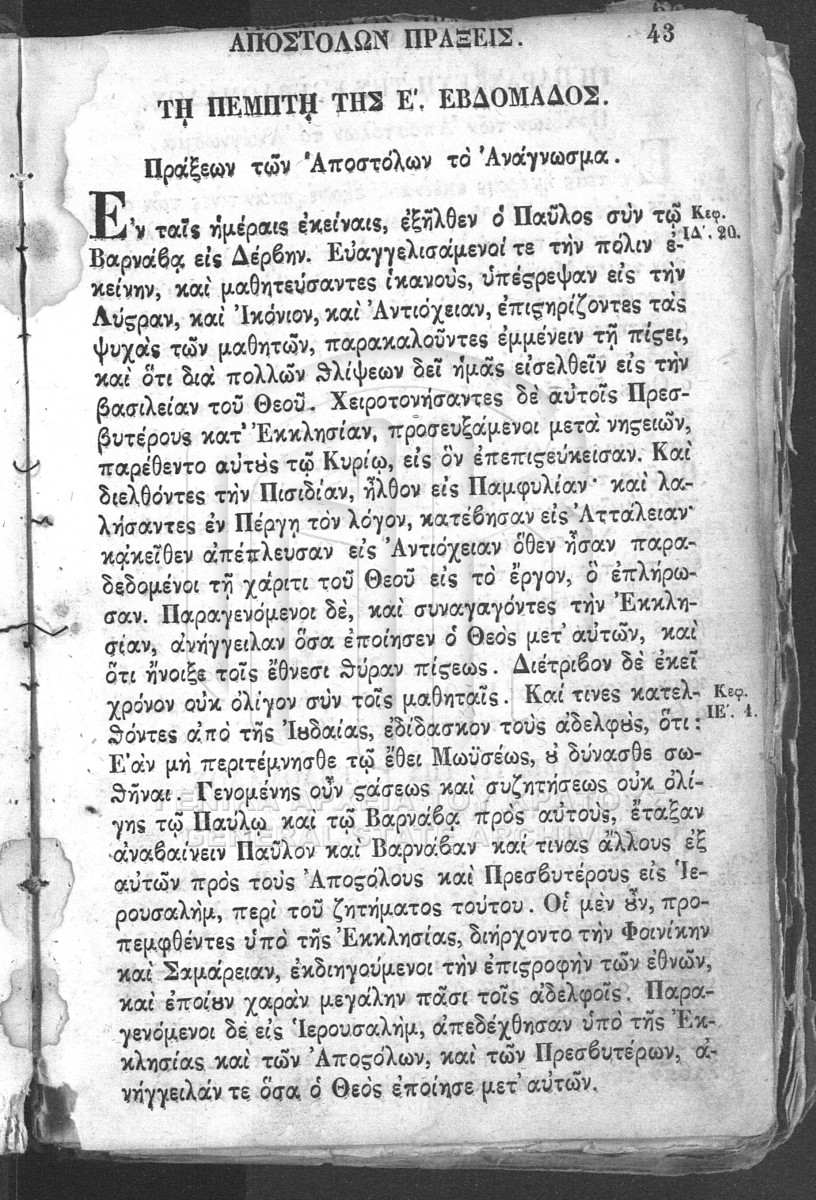 ΑΠΟΣΤΟΛΩΝ ΠΡΑΞΕΙΣ. 43
ΤΗ ΠΕΜΠΤΗ ΤΗΣ Ε'. ΕΒΔΟΜΑΔΟΣ.
Πράξεων τῶν Ἀποστόλων τὸ Ἀνάγνωσμα.
Ἐν ταῖς ἡμέραις ἐκείναις, ἐξῆλθεν ὁ Παῦλος σὺν τῷ Κεφ.
Βαρνάβᾳ εἰς Δέρβην. Εὐαγγελισάμενοί τε τὴν πόλιν ἐ- ΙΔ'. 20.
κείνην, καὶ μαθητεύσαντες ἱκανοὺς, ὑπέϛρεψαν εἰς τὴν
Λύϛραν, καὶ Ἰκόνιον, καὶ Ἀντιόχειαν, ἐπιϛηρίζοντες τὰς
ψυχὰς τῶν μαθητῶν, παρακαλοῦντες ἐμμένειν τῇ πίϛει,
καὶ ὅτι διὰ πολλῶν θλίψεων δεῖ ἡμᾶς εἰσελθεῖν εἰς τὴν
βασιλείαν τοῦ Θεοῦ. Χειροτονήσαντες δὲ αὐτοῖς Πρεσ-
βυτέρους κατ' Ἐκκλησίαν, προσευξάμενοι μετὰ νηϛειῶν,
παρέθεντο αὐτȣ̀ς τῷ Κυρίῳ, εἰς ὃν ἐπεπιϛεύκεισαν. Καὶ
διελθόντες τὴν Πισιδίαν, ἦλθον εἰς Παμφυλίαν· καὶ λα-
λήσαντες ἐν Πέργῃ τὸν λόγον, κατέβησαν εἰς Ἀττάλειαν·
κἀκεῖθεν ἀπέπλευσαν εἰς Ἀντιόχειαν ὅθεν ἦσαν παρα-
δεδομένοι τῇ χάριτι τοῦ Θεοῦ εἰς τὸ ἔργον, ὃ ἐπλήρω-
σαν. Παραγενόμενοι δὲ, καὶ συναγαγόντες τὴν Ἐκκλη-
σίαν, ἀνήγγειλαν ὅσα ἐποίησεν ὁ Θεὸς μετ' αὐτῶν, καὶ
ὅτι ἤνοιξε τοῖς ἔθνεσι θύραν πίϛεως. Διέτριβον δὲ ἐκεῖ
χρόνον οὐκ ὀλίγον σὺν τοῖς μαθηταῖς. Καί τινες κατελ- Κεφ.
θόντες ἀπὸ τῆς Ἰȣδαίας, ἐδίδασκον τοὺς ἀδελφȣ̀ς, ὅτι: ΙΕ'. 1.
Ἐὰν μὴ περιτέμνησθε τῷ ἔθει Μωϋσέως, ȣ̓ δύνασθε σω-
θῆναι. Γενομένης οὖν ϛάσεως καὶ συζητήσεως οὐκ ὀλί-
γης τῷ Παύλῳ καὶ τῷ Βαρνάβᾳ πρὸς αὐτοὺς, ἔταξαν
ἀναβαίνειν Παῦλον καὶ Βαρνάβαν καί τινας ἄλλους ἐξ
αὐτῶν πρὸς τοὺς Ἀποϛόλους καὶ Πρεσβυτέρους εἰς Ἱε-
ρουσαλὴμ, περὶ τοῦ ζητήματος τούτου. Οἱ μὲν ȣ̓͂ν, προ-
πεμφθέντες ὑπὸ τῆς Ἐκκλησίας, διήρχοντο τὴν Φοινίκην
καὶ Σαμάρειαν, ἐκδιηγούμενοι τὴν ἐπιϛροφὴν τῶν ἐθνῶν,
καὶ ἐποίȣν χαρὰν μεγάλην πᾶσι τοῖς ἀδελφοῖς. Παρα-
γενόμενοι δὲ εἰς Ἱερουσαλὴμ, ἀπεδέχθησαν ὑπὸ τῆς Ἐκ-
κλησίας καὶ τῶν Ἀποϛόλων, καὶ τῶν Πρεσβυτέρων, ἀ-
νήγγειλάν τε ὅσα ὁ Θεὸς ἐποίησε μετ' αὐτῶν.
ΓΕΝΙΚΑ ΑΡΧΕΙΑ ΤΟΥ ΚΡΑΤΟΥΣ
GENERAL STATE ARCHIVES